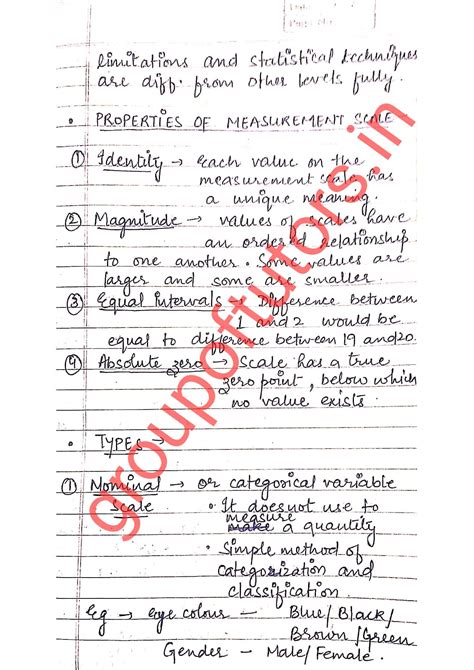 limitations and statistical techniques
are diff. from other levels fully.
• PROPERTIES OF MEASUREMENT SCALE
① Identity → Each value on the
measurement scale has
a unique meaning.
② Magnitude → values of scales have
an ordered relationship
to one another. Some values are
larger and some are smaller.
③ Equal Intervals → Difference between
1 and 2 would be
equal to difference between 19 and 20.
④ Absolute zero → Scale has a true
zero point, below which
no value exists.
• TYPES →
① Nominal → or categorical variable
scale • It doesnot use to
measure
make a quantity
• Simple method of
categorization and
classification.
Eg → eye colour – Blue/Black/
Brown/Green
Gender – Male/Female.
groupoftutors.in